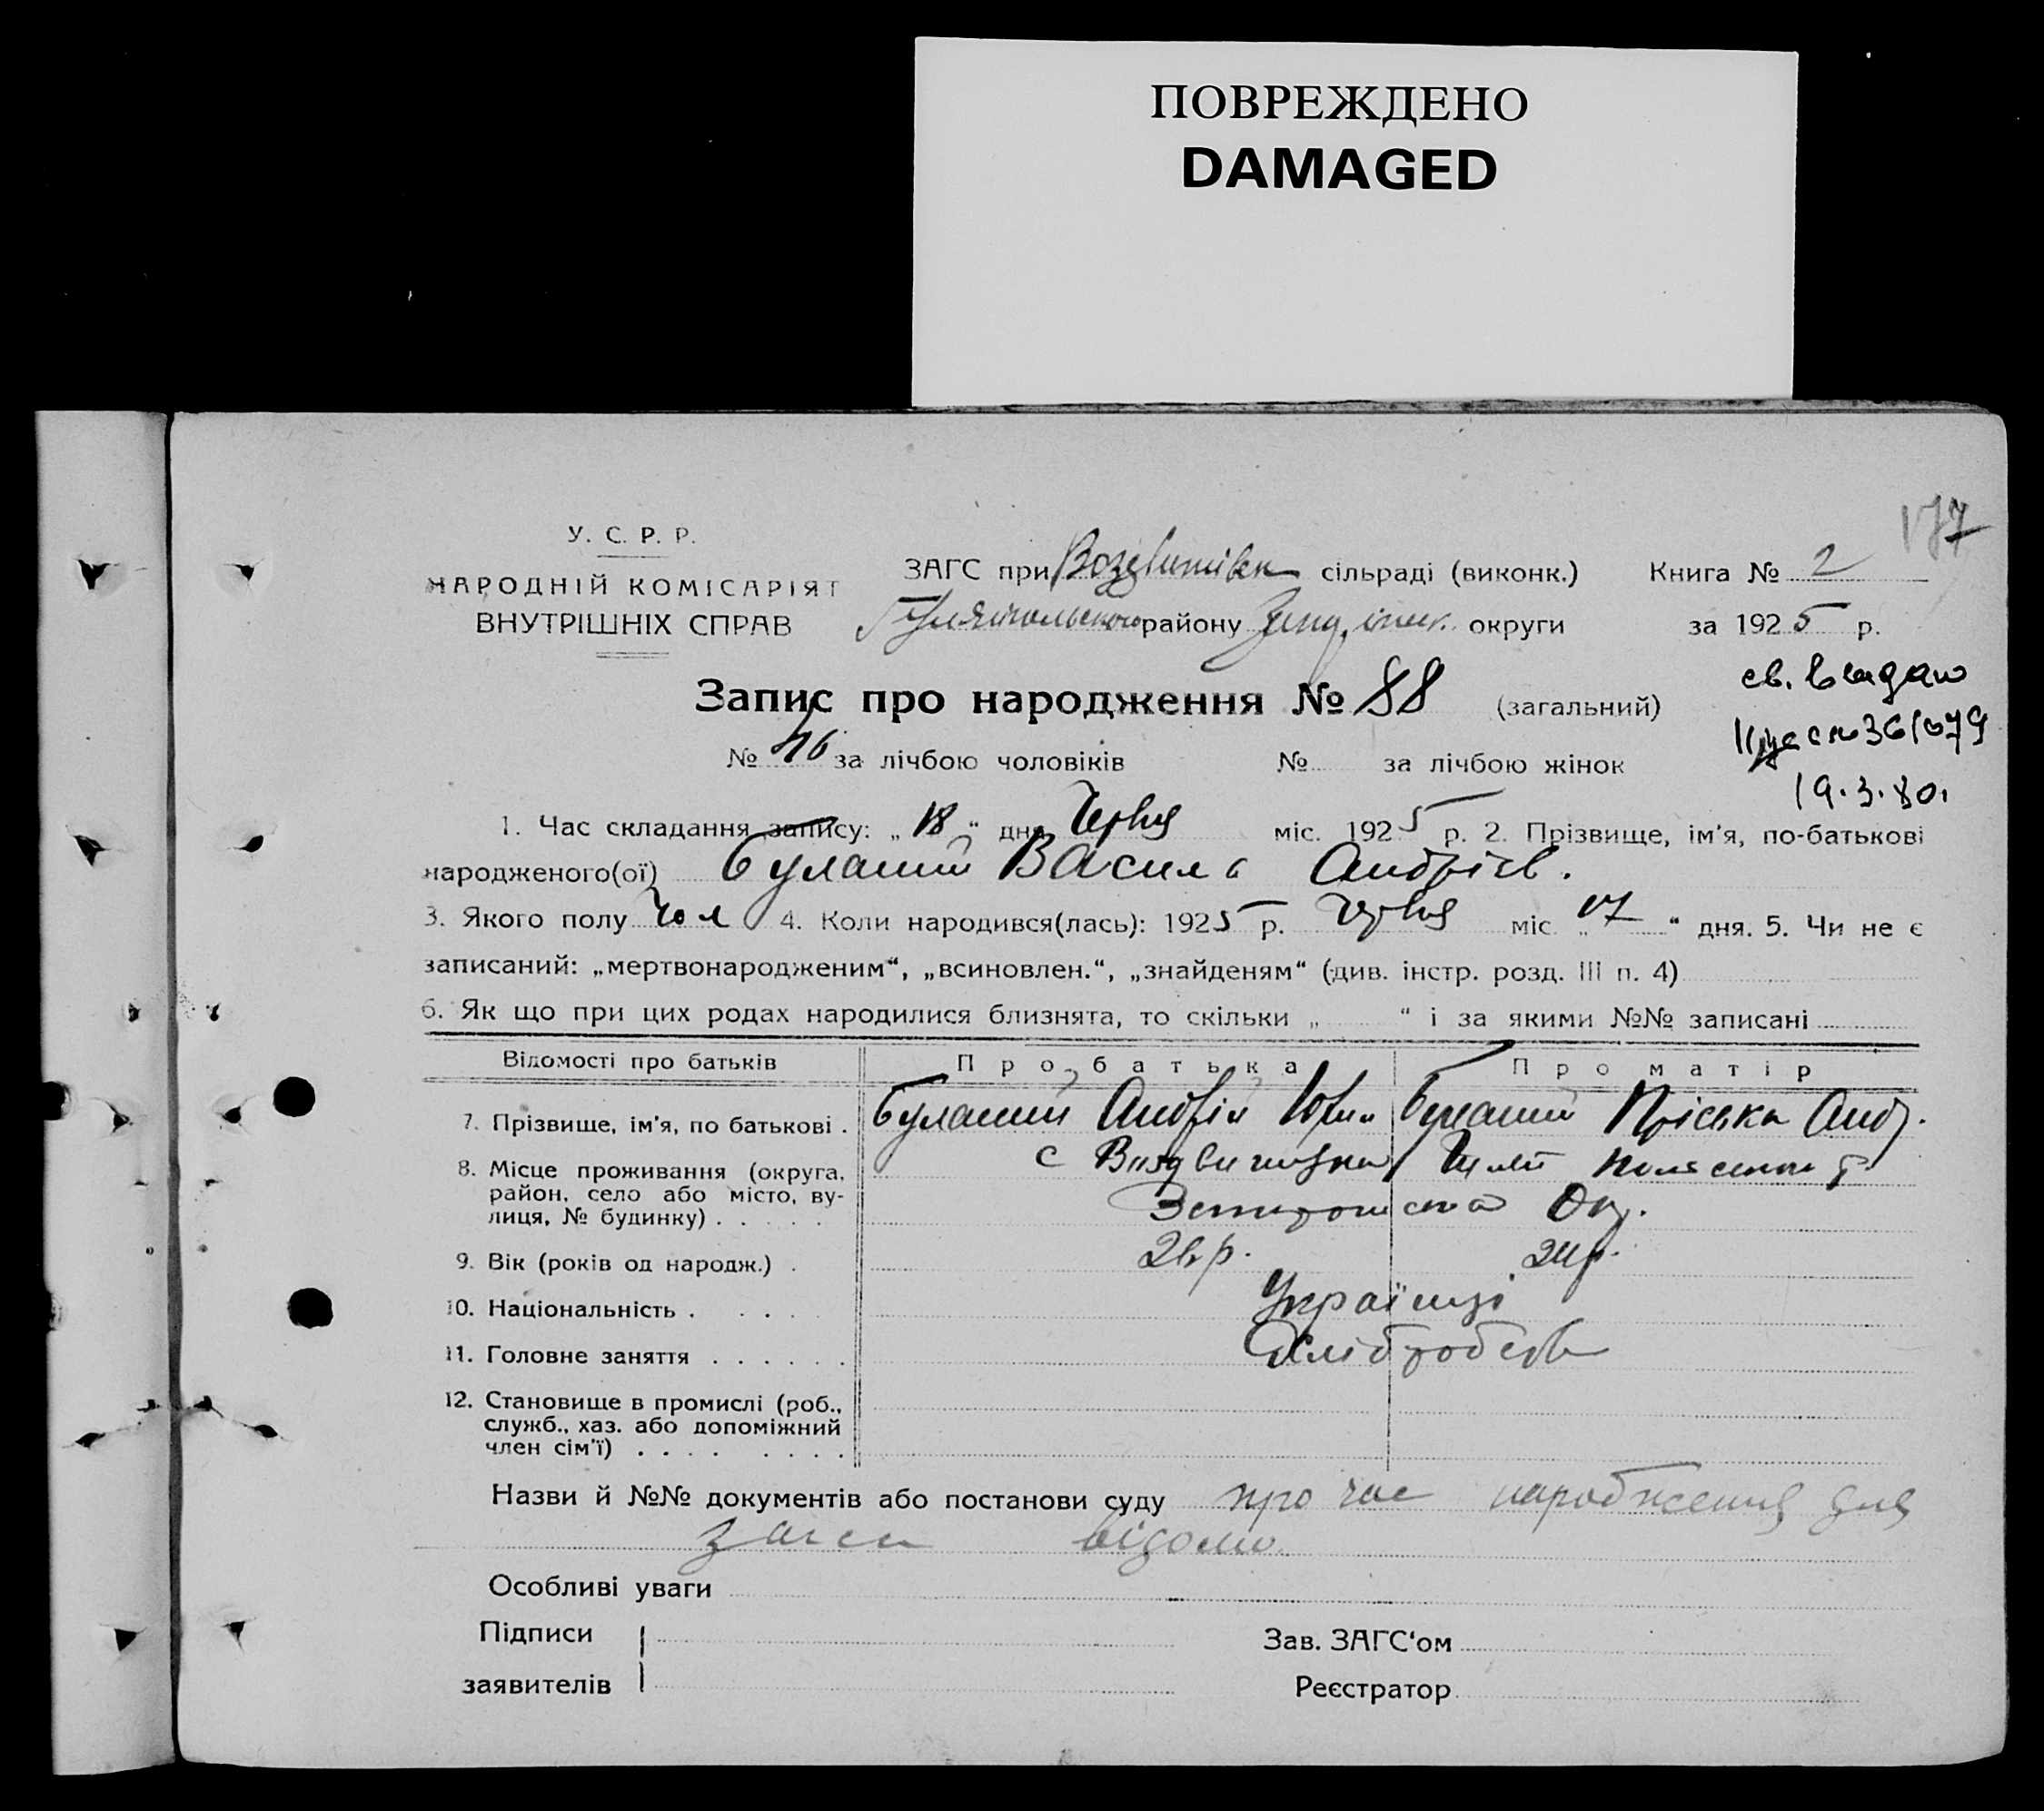 ПОВРЕЖДЕНО
DAMAGED
177
У. С. Р. Р.
НАРОДНІЙ КОМІСАРІЯТ
ВНУТРІШНІХ СПРАВ
ЗАГС при сільраді (виконк.) Книга № 2
району округи за 1925 р.
Запис про народження № 88 (загальний)
св. видано
361079
19.3.80.
№ 46 за лічбою чоловіків № за лічбою жінок
1. Час складання запису: „18“ дня Червня міс. 1925 р. 2. Прізвище, ім'я, по-батькові
народженого(ої) Буланий Василь Андрієв.
3. Якого полу чол 4. Коли народився(лась): 1925 р. Червня міс. „17“ дня. 5. Чи не є
записаний: „мертвонародженим“, „всиновлен.“, „знайденям“ (див. інстр. розд. III п. 4)
6. Як що при цих родах народилися близнята, то скільки „ “ і за якими №№ записані
Відомості про батьків Про батька Про матір
7. Прізвище, ім'я, по батькові . Буланий Андрій Буланий Пріська Андр.
8. Місце проживання (округа,
район, село або місто, ву-
лиця, № будинку) . . . . . Окр.
9. Вік (років од народж.) .
10. Національність . . . . Українці
11. Головне заняття . . . . . . Хлібороби
12. Становище в промислі (роб.,
служб., хаз. або допоміжний
член сім'ї) . . . . . . . .
Назви й №№ документів або постанови суду про час народження для
загса відомо.
Особливі уваги
Підписи Зав. ЗАГС'ом
заявителів Реєстратор